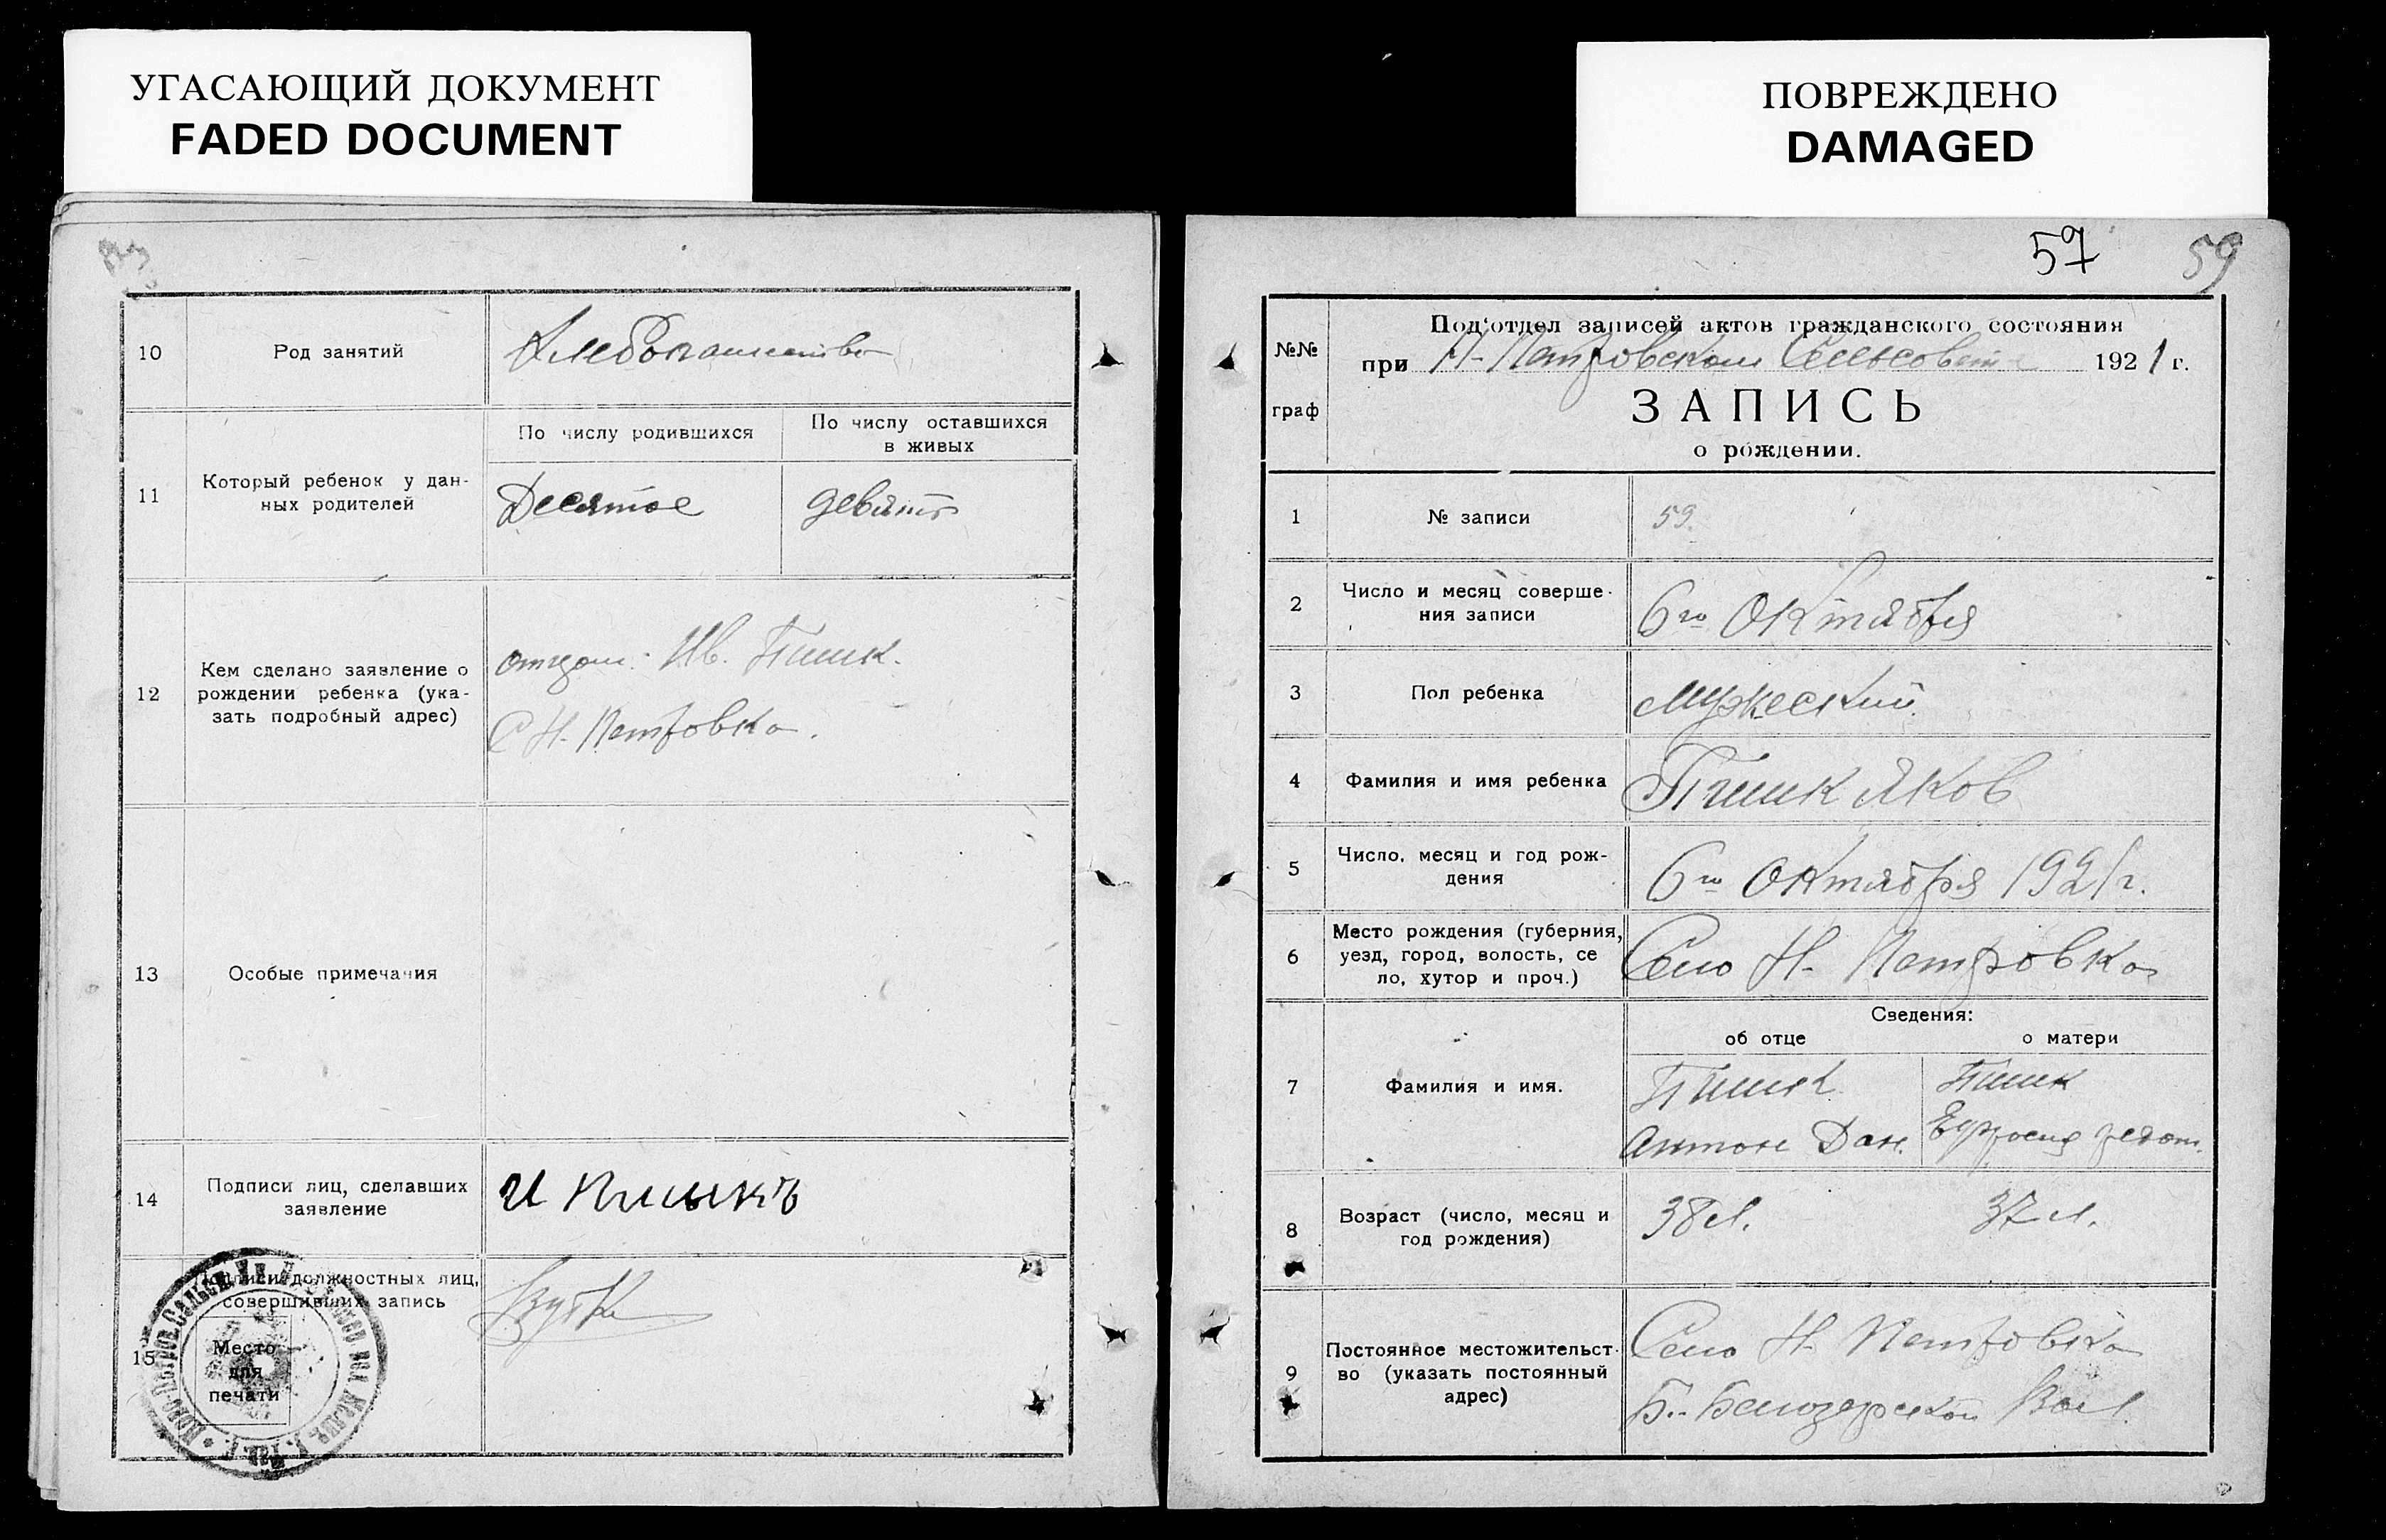 УГАСАЮЩИЙ ДОКУМЕНТ
FADED DOCUMENT
10
Род занятий
Хлебопашество
11
Который ребенок у дан-
ных родителей
По числу родившихся
Десятое
По числу оставшихся
в живых
девять
12
Кем сделано заявление о
рождении ребенка (ука-
зать подробный адрес)
отцом. Ив. Пшик.
С Н. Петровка.
13
Особые примечания
14
Подписи лиц, сделавших
заявление
И Пшикъ
15
Подписи должностных лиц,
совершивших запись
Место
для
печати
ПОВРЕЖДЕНО
DAMAGED
57
59
№№
граф
Под'отдел записей актов гражданского состояния
при Н-Петровском Сельсовете 1921 г.
ЗАПИСЬ
о рождении.
1
№ записи
59.
2
Число и месяц соверше-
ния записи
6го Октября
3
Пол ребенка
Мужеский
4
Фамилия и имя ребенка
Пшик Яков
5
Число, месяц и год рож-
дения
6го Октября 1921 г.
6
Место рождения (губерния,
уезд, город, волость, се
ло, хутор и проч.)
Село Н. Петровка
Сведения:
об отце
о матери
7
Фамилия и имя.
Пшик
Антон Дан.
Пшик
8
Возраст (число, месяц и
год рождения)
38 л.
37 л.
9
Постоянное местожительст-
во (указать постоянный
адрес)
Село Н. Петровка
Б.-Белозерской Вол.